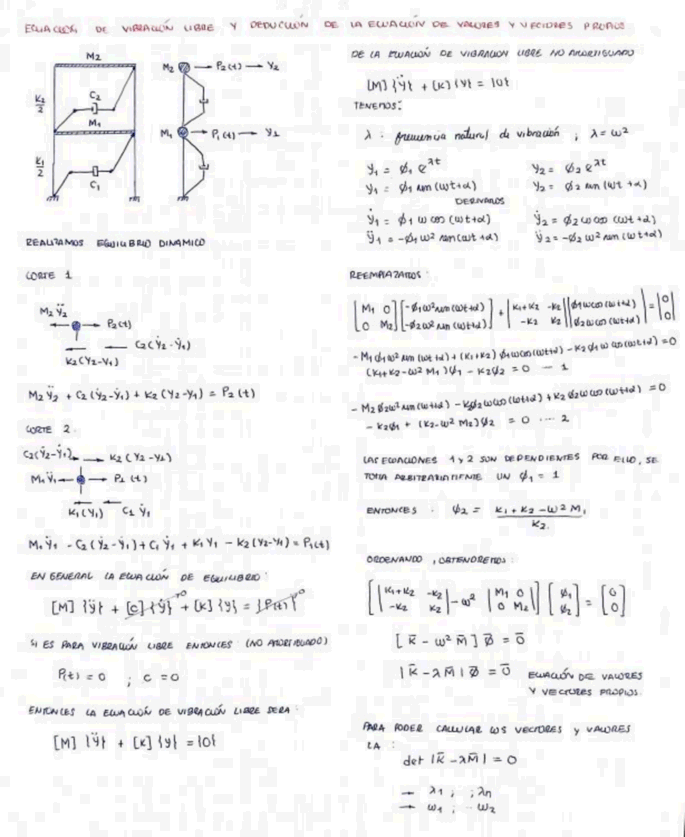 ECUACION DE VIBRACION LIBRE Y DEDUCCION DE LA ECUACION DE VALORES Y VECTORES PROPIOS
M2
K2/2
C2
M1
K1/2
C1
M2 → P2(t) → Y2
M1 → P1(t) → Y1
REALIZAMOS EQUILIBRIO DINAMICO
CORTE 1
M2 Ÿ2
P2(t)
C2(Ẏ2-Ẏ1)
K2(Y2-Y1)
M2 Ÿ2 + C2(Ẏ2-Ẏ1) + K2(Y2-Y1) = P2(t)
CORTE 2.
C2(Ẏ2-Ẏ1) K2(Y2-Y1)
M1 Ÿ1 P1(t)
K1(Y1) C1 Ẏ1
M1 Ÿ1 - C2(Ẏ2-Ẏ1) + C1 Ẏ1 + K1 Y1 - K2(Y2-Y1) = P1(t)
EN GENERAL LA ECUACION DE EQUILIBRIO:
[M]{Ÿ} + [C]{Ẏ} + [K]{Y} = {P(t)}
SI ES PARA VIBRACION LIBRE ENTONCES (NO AMORTIGUADO)
P(t) = 0 ; C = 0
ENTONCES LA ECUACION DE VIBRACION LIBRE SERA:
[M]{Ÿ} + [K]{Y} = {0}
DE LA ECUACION DE VIBRACION LIBRE NO AMORTIGUADO
[M]{Ÿ} + [K]{Y} = {0}
TENEMOS:
λ : frecuencia natural de vibración ; λ = ω²
Y1 = Ø1 e^λt Y2 = Ø2 e^λt
Y1 = Ø1 sen(ωt+α) Y2 = Ø2 sen(ωt+α)
DERIVAMOS
Ẏ1 = Ø1 ω cos(ωt+α) Ẏ2 = Ø2 ω cos(ωt+α)
Ÿ1 = -Ø1 ω² sen(ωt+α) Ÿ2 = -Ø2 ω² sen(ωt+α)
REEMPLAZAMOS:
[M1 0; 0 M2][-Ø1ω² sen(ωt+α); -Ø2ω² sen(ωt+α)] + |K1+K2 -K2; -K2 K2||Ø1ω cos(ωt+α); Ø2ω cos(ωt+α)| = |0; 0|
-M1 Ø1 ω² sen(ωt+α) + (K1+K2) Ø1 ω cos(ωt+α) - K2 Ø1 ω cos(ωt+α) = 0
(K1+K2-ω² M1) Ø1 - K2 Ø2 = 0 --- 1
-M2 Ø2 ω² sen(ωt+α) - K2 Ø2 ω cos(ωt+α) + K2 Ø2 ω cos(ωt+α) = 0
-K2 Ø1 + (K2-ω² M2) Ø2 = 0 ---- 2
LAS ECUACIONES 1 y 2 SON DEPENDIENTES POR ELLO, SE
TOMA ARBITRARIAMENTE UN Ø1 = 1
ENTONCES : Ø2 = (K1 + K2 - ω² M1) / K2
ORDENANDO, OBTENDREMOS:
[|K1+K2 -K2; -K2 K2| - ω² |M1 0; 0 M2|] [Ø1; Ø2] = [0; 0]
[K̄ - ω² M̄] Ø̄ = 0̄
|K̄ - λM̄| Ø̄ = 0̄ ECUACIÓN DE VALORES
Y VECTORES PROPIOS.
PARA PODER CALCULAR LOS VECTORES Y VALORES
LA :
det |K̄ - λM̄| = 0
→ λ1 , ; λn
→ ω1 ; ω2